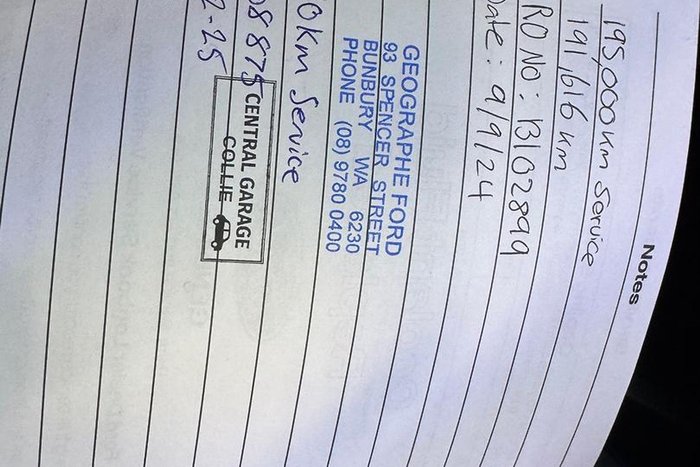 Notes
195,000 km Service
191,616 km
RO NO: B102899
Date: 9/9/24
GEOGRAPHE FORD
93 SPENCER STREET
BUNBURY WA 6230
PHONE (08) 9780 0400
0km Service
08 875
2-25
CENTRAL GARAGE
COLLIE